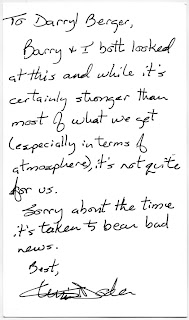 To Darryl Berger,
Barry & I both looked
at this and while it's
certainly stronger than
most of what we get
(especially in terms of
atmosphere), it's not quite
for us.
Sorry about the time
it's taken to bear bad
news.
Best,